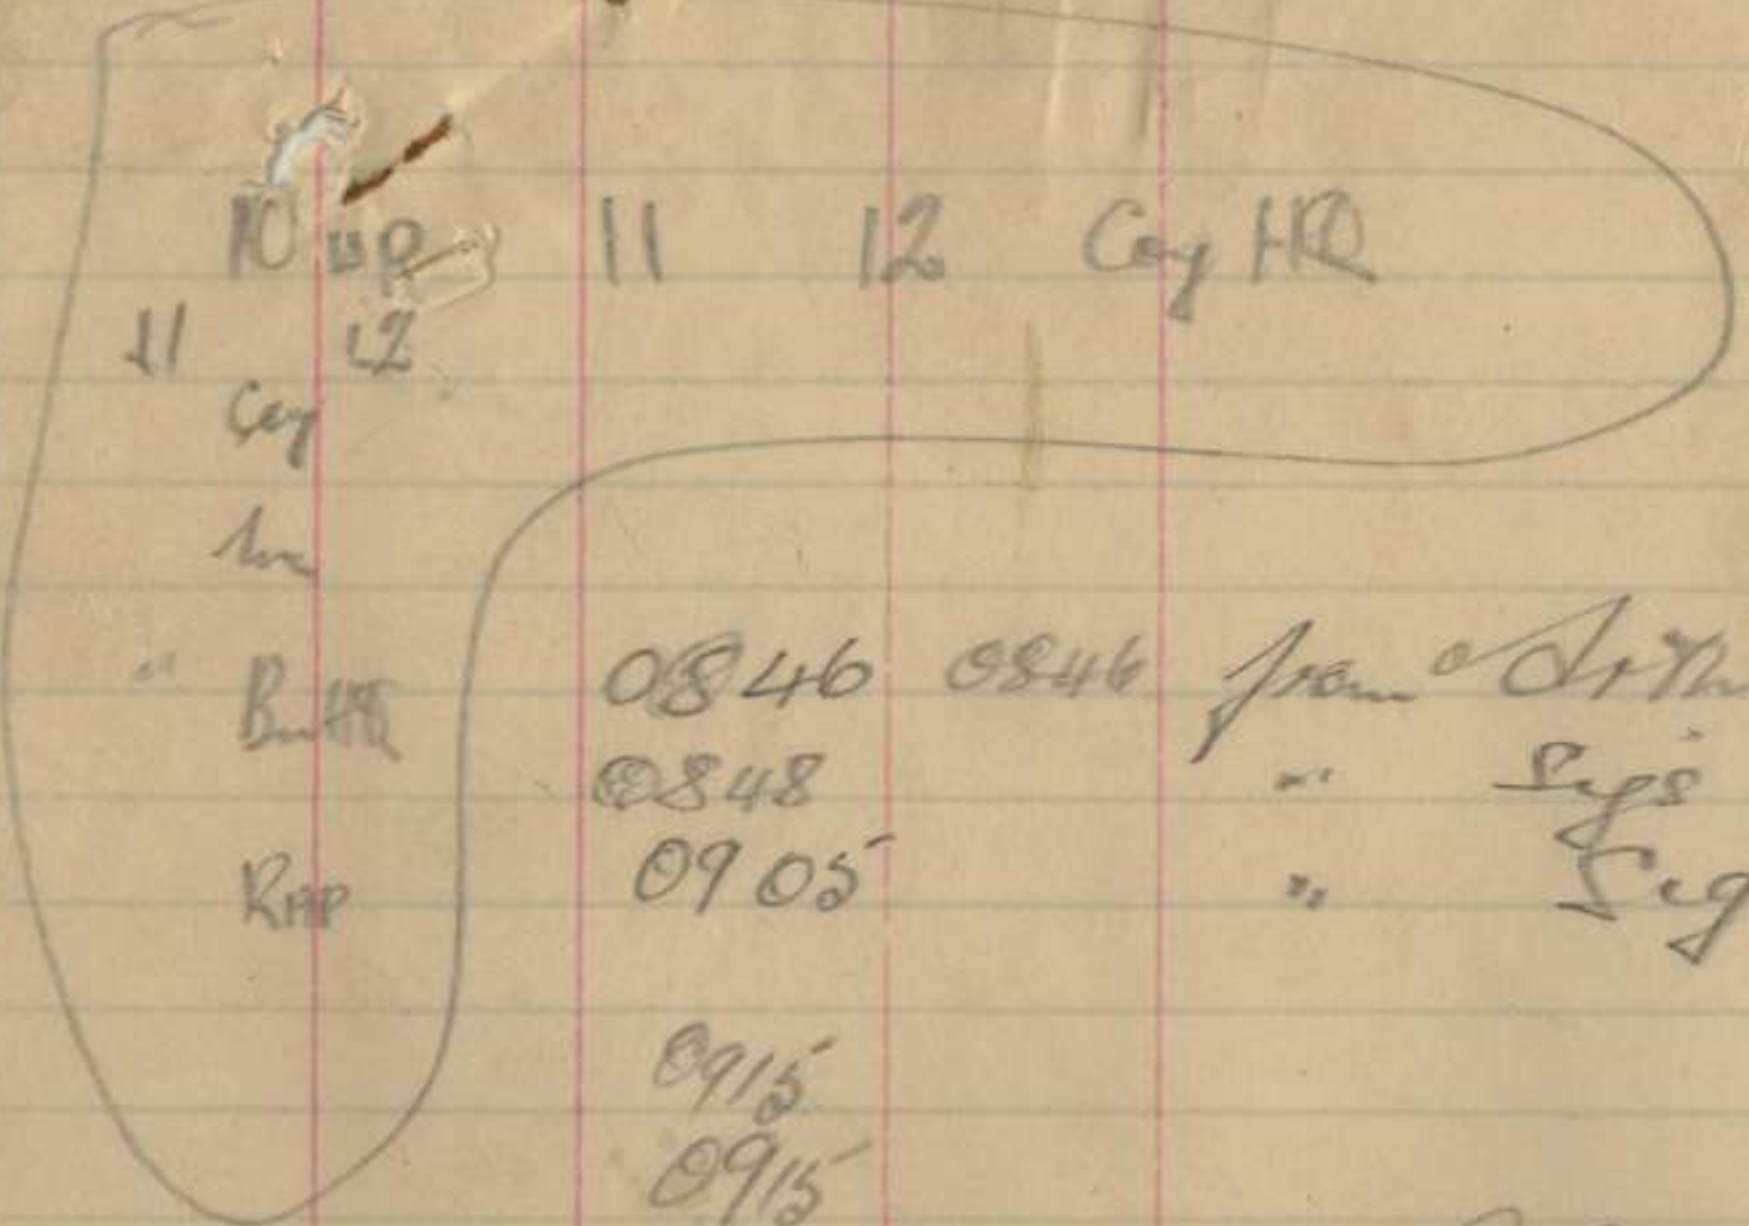 10 up 11 12 Coy HQ
11 12
Coy
" Bn HQ 0846 0846 from
0848 " Sigs
RAP 0905 " Sig
0915
0915